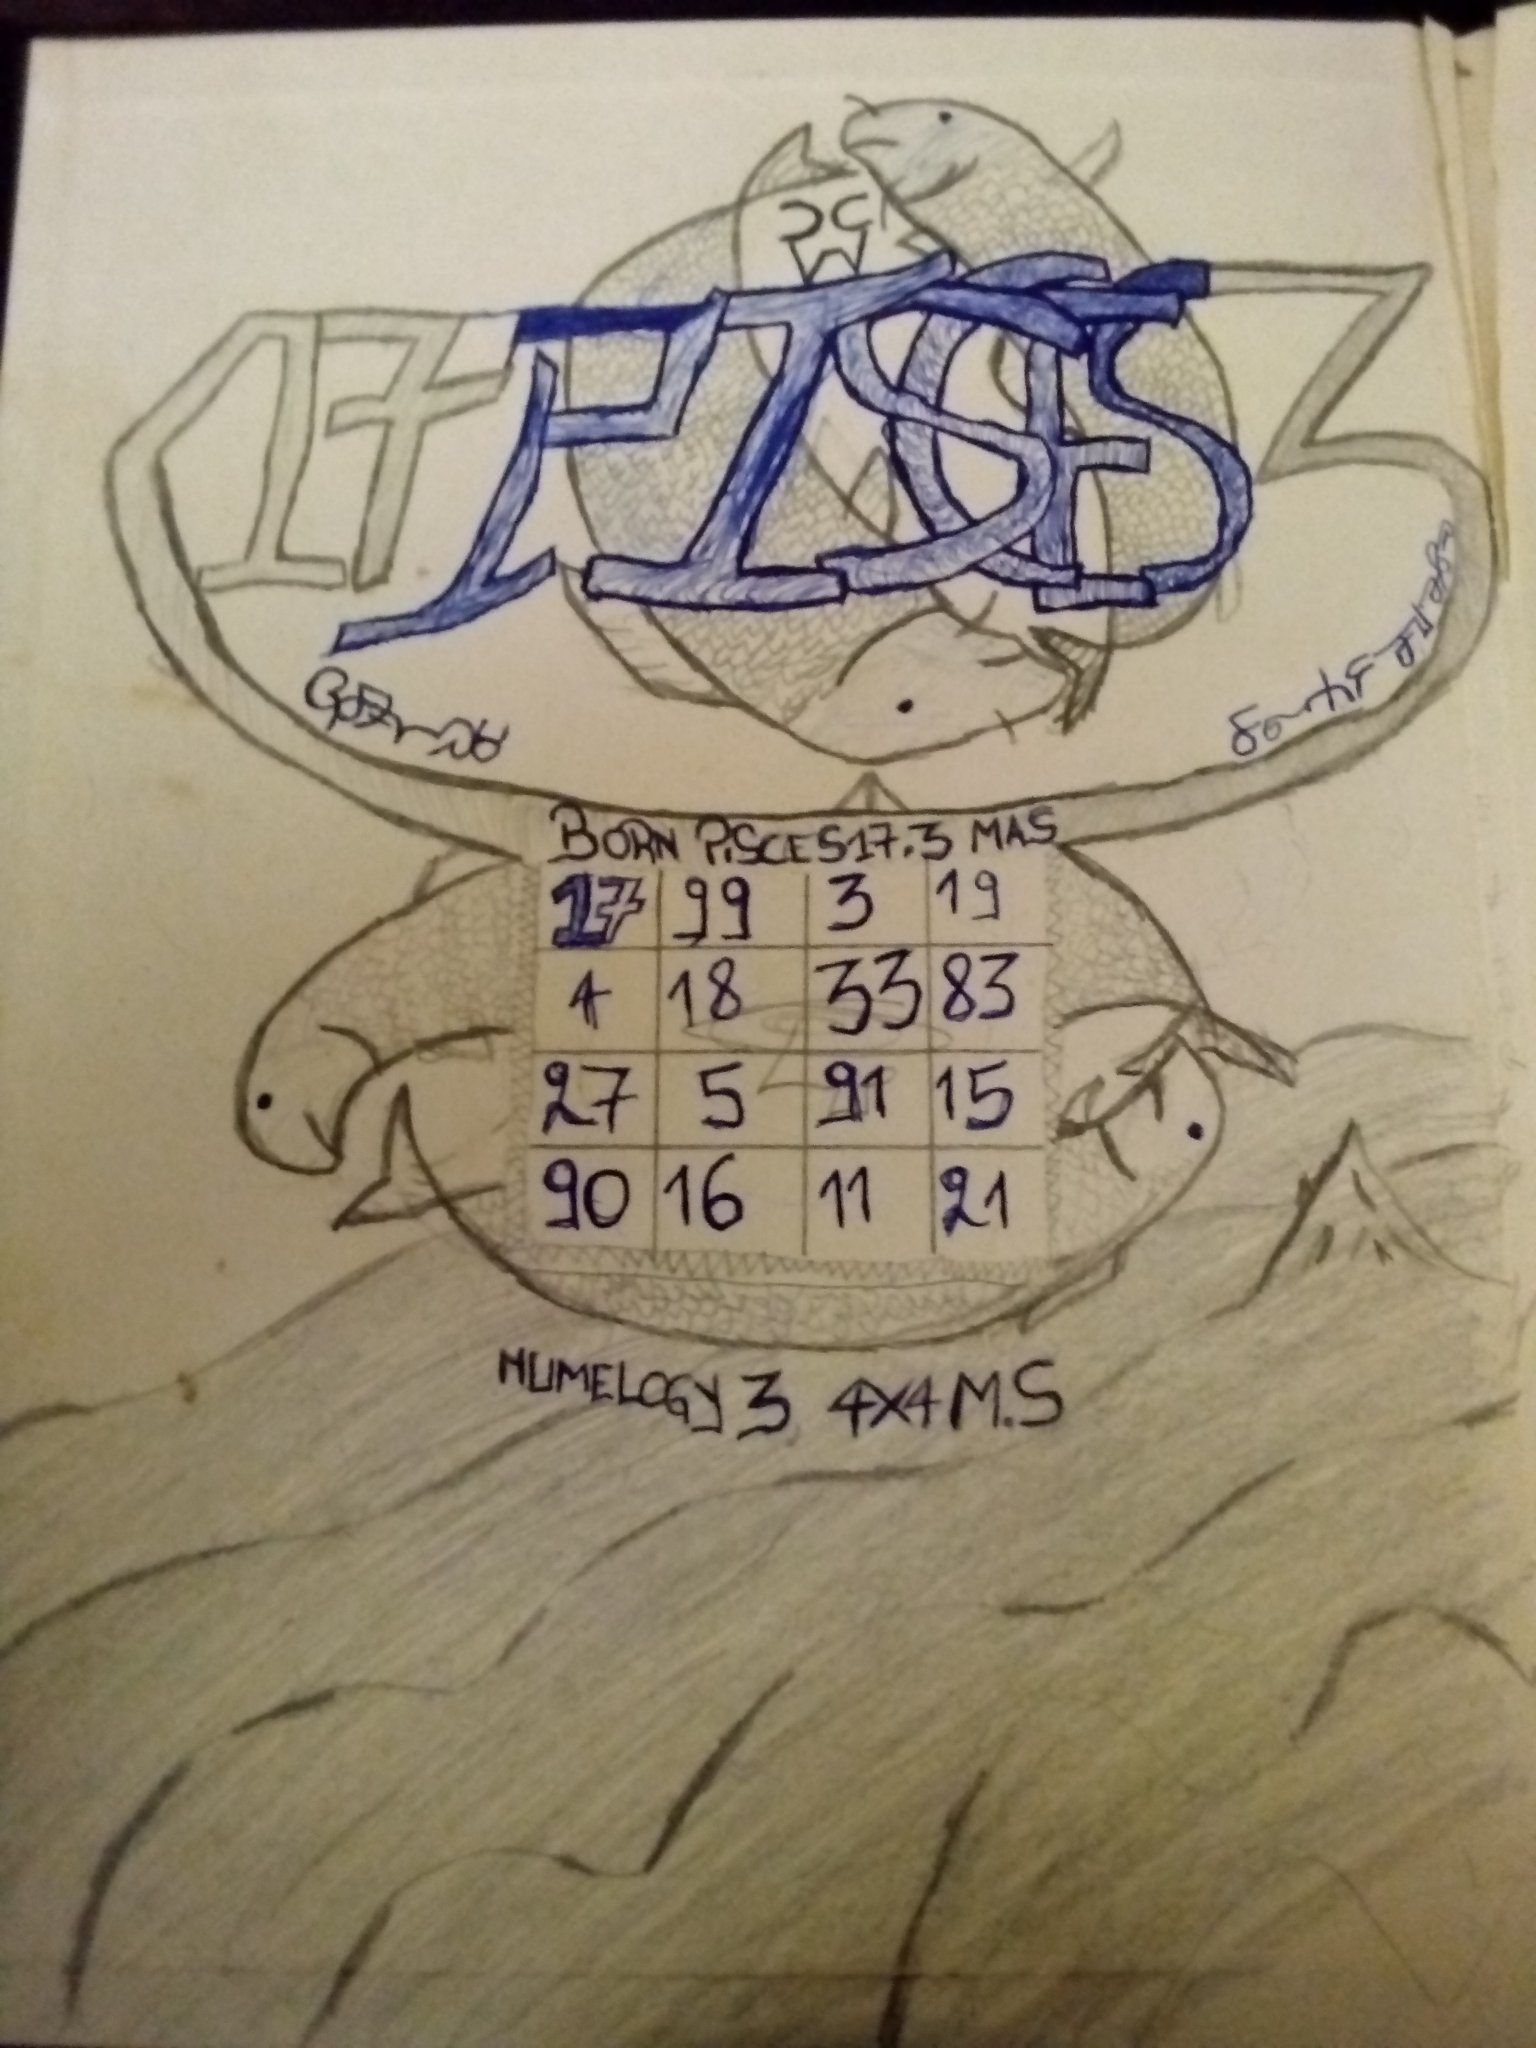 17 PISCES 3
BORN PiSCES 17.3 MAS
17 99 3 19
1 18 33 83
27 5 91 15
90 16 11 21
NUMELOGY 3 4X4 M.S